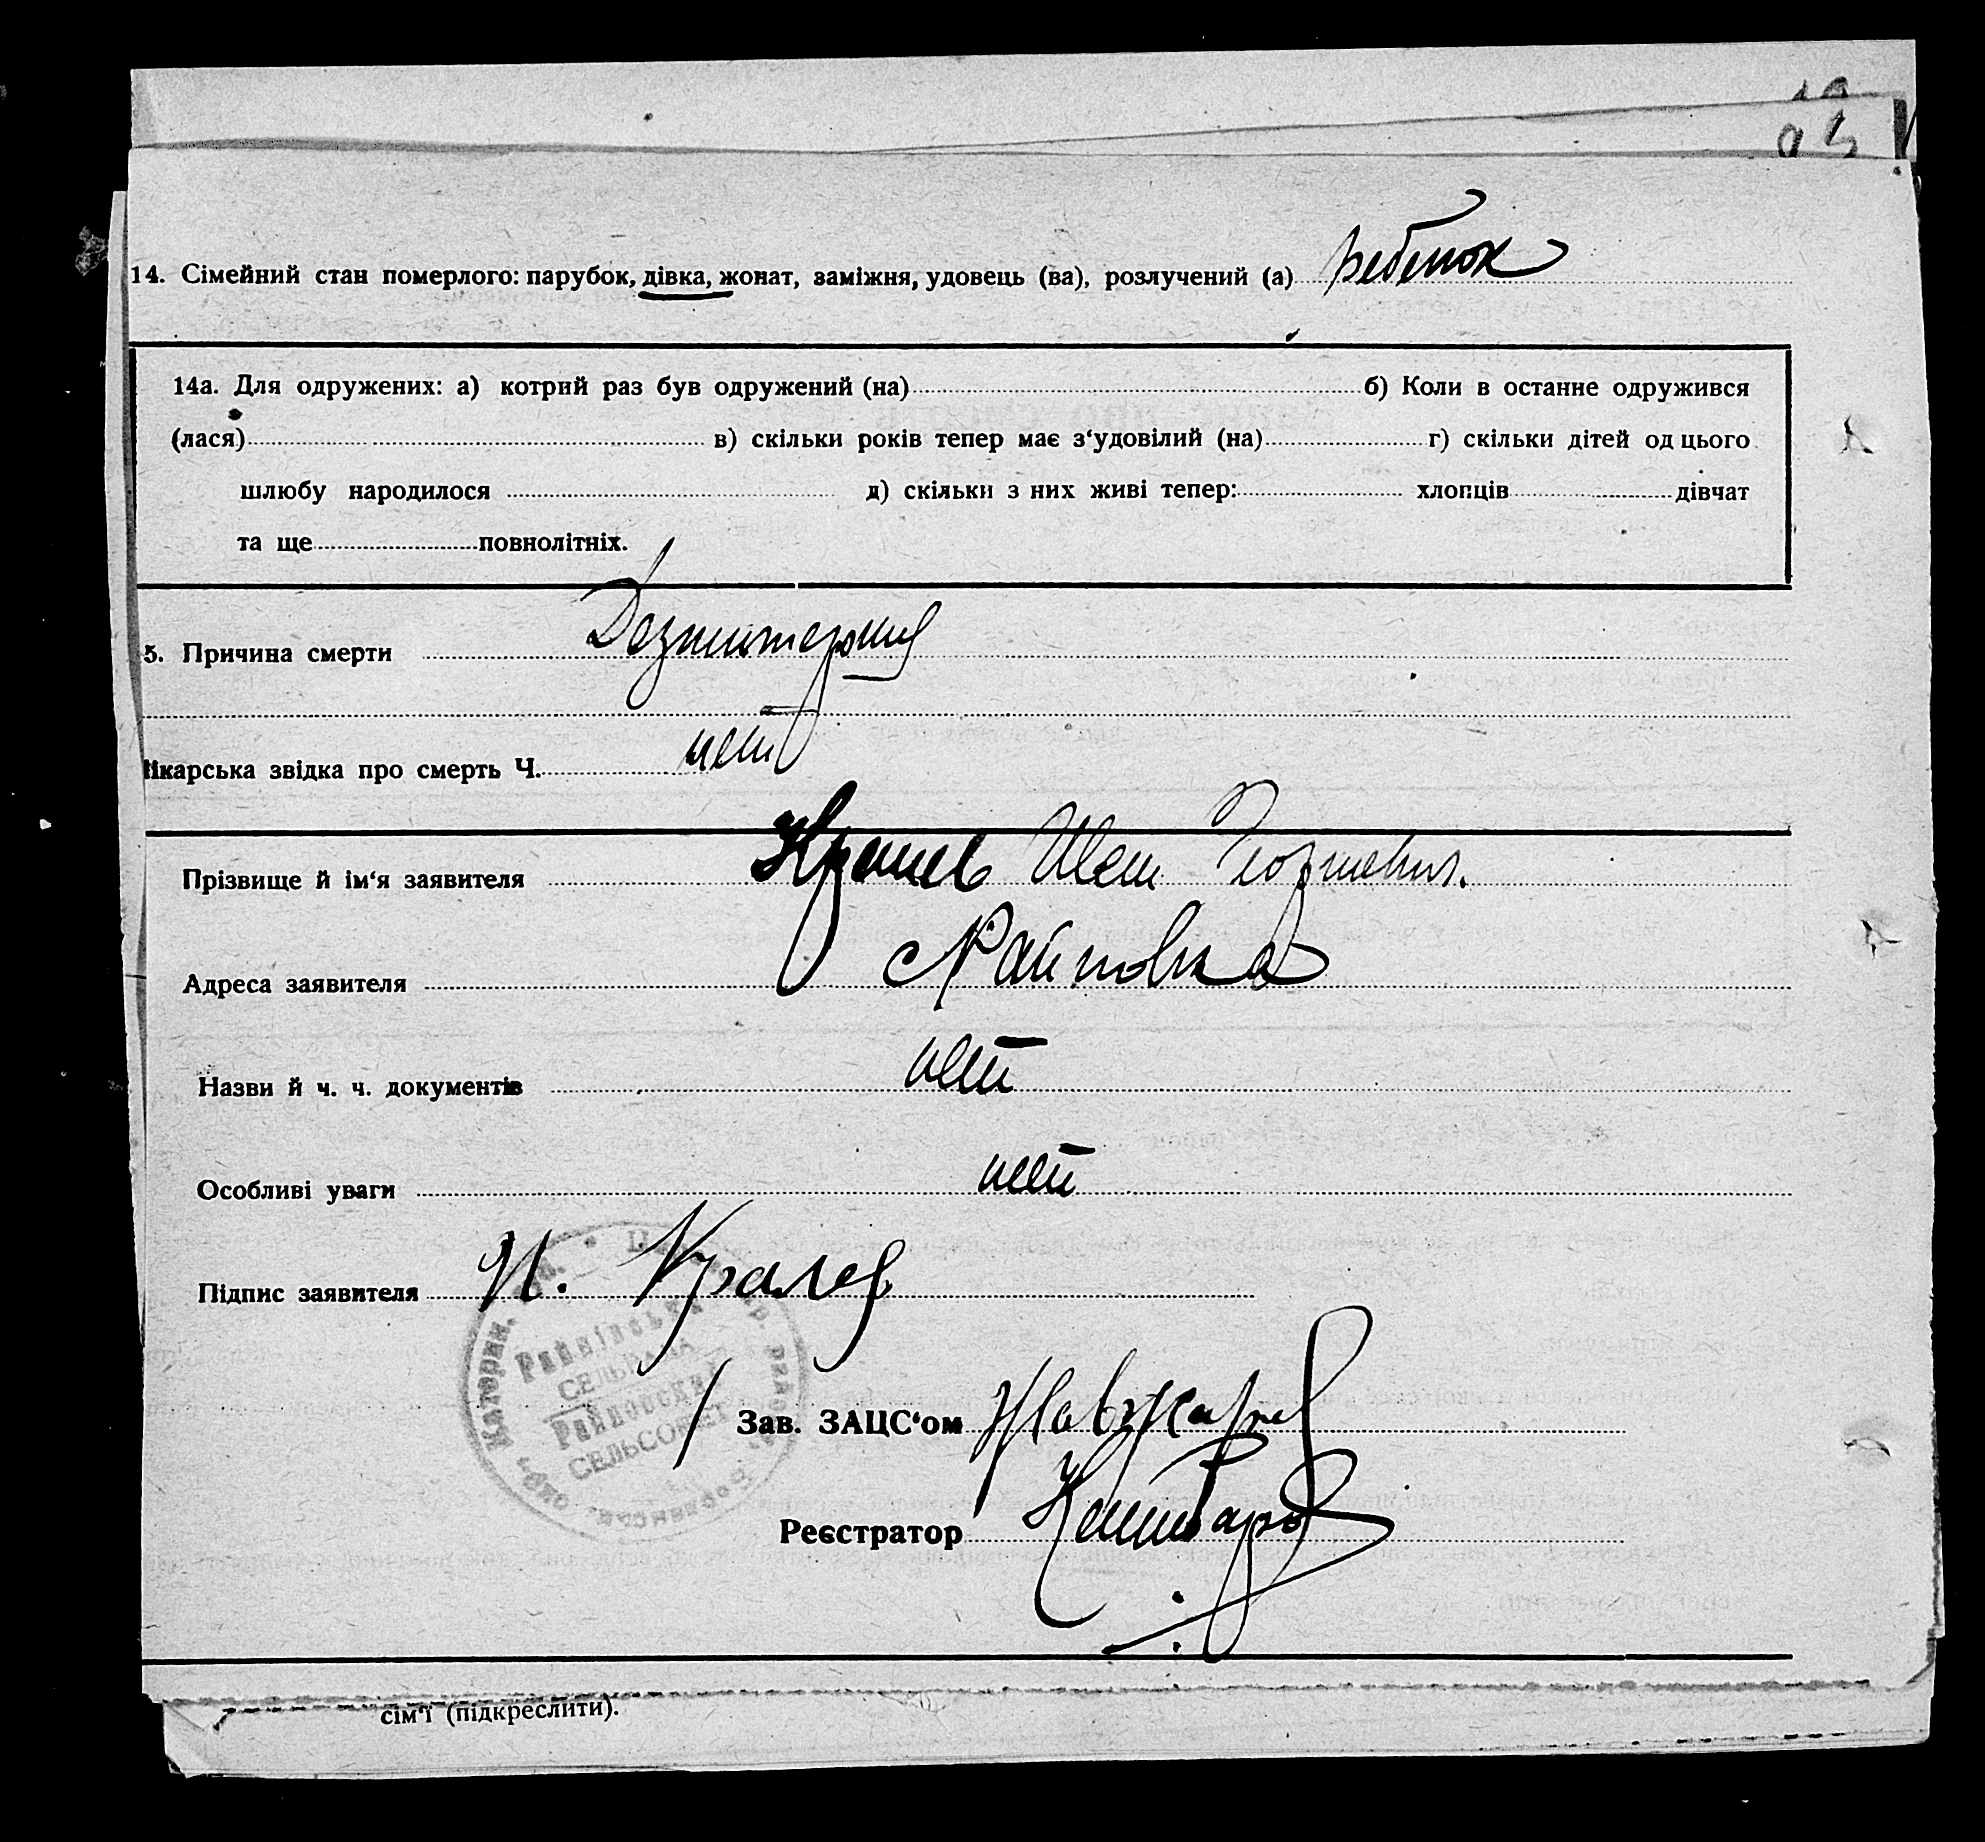 14. Сімейний стан померлого: парубок, дівка, жонат, заміжня, удовець (ва), розлучений (а) ребенок
14а. Для одружених: а) котрий раз був одружений (на) б) Коли в останнє одружився
(лася) в) скільки років тепер має з‘удовілий (на) г) скільки дітей од цього
шлюбу народилося д) скільки з них живі тепер: хлопців дівчат
та ще повнолітніх.
5. Причина смерти
ікарська звідка про смерть Ч. нет
Прізвище й ім‘я заявителя Георгиевич.
Адреса заявителя с Райновка
Назви й ч. ч. документів нет
Особливі уваги нет
Підпис заявителя И. Кралев
Райнівська
СЕЛЬРАДА
Райновский
СЕЛЬСОВЕТ
Зав. ЗАЦС‘ом
Реєстратор
сім‘ї (підкреслити).